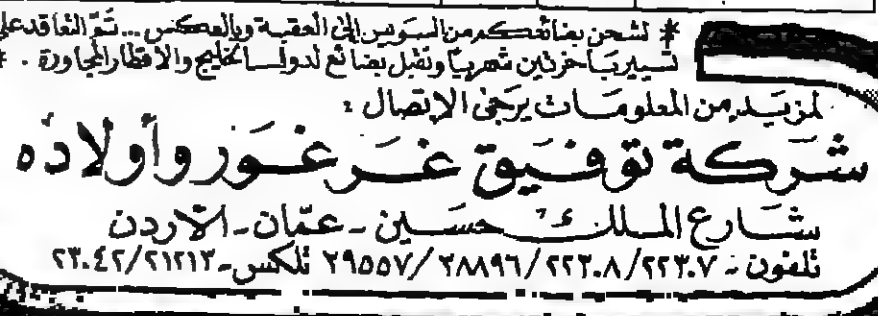 * لشحن بضائعكم من السويس إلى العقبة وبالعكس ... تمّ التعاقد على
تسيير باخرتين شهرياً ونقبل بضائع لدول الخليج والاقطار المجاورة . *
لمزيد من المعلومات يرجى الاتصال :
شركة توفيق غرغور وأولاده
شارع الملك حسين - عمّان - الأردن
تلفون - ٢٢٣٠٧/ ٢٢٣٠٨/ ٢٨٨٩٦/ ٢٩٥٥٧ تلكس - ٢١٢١٣/ ٢٣٠٤٢